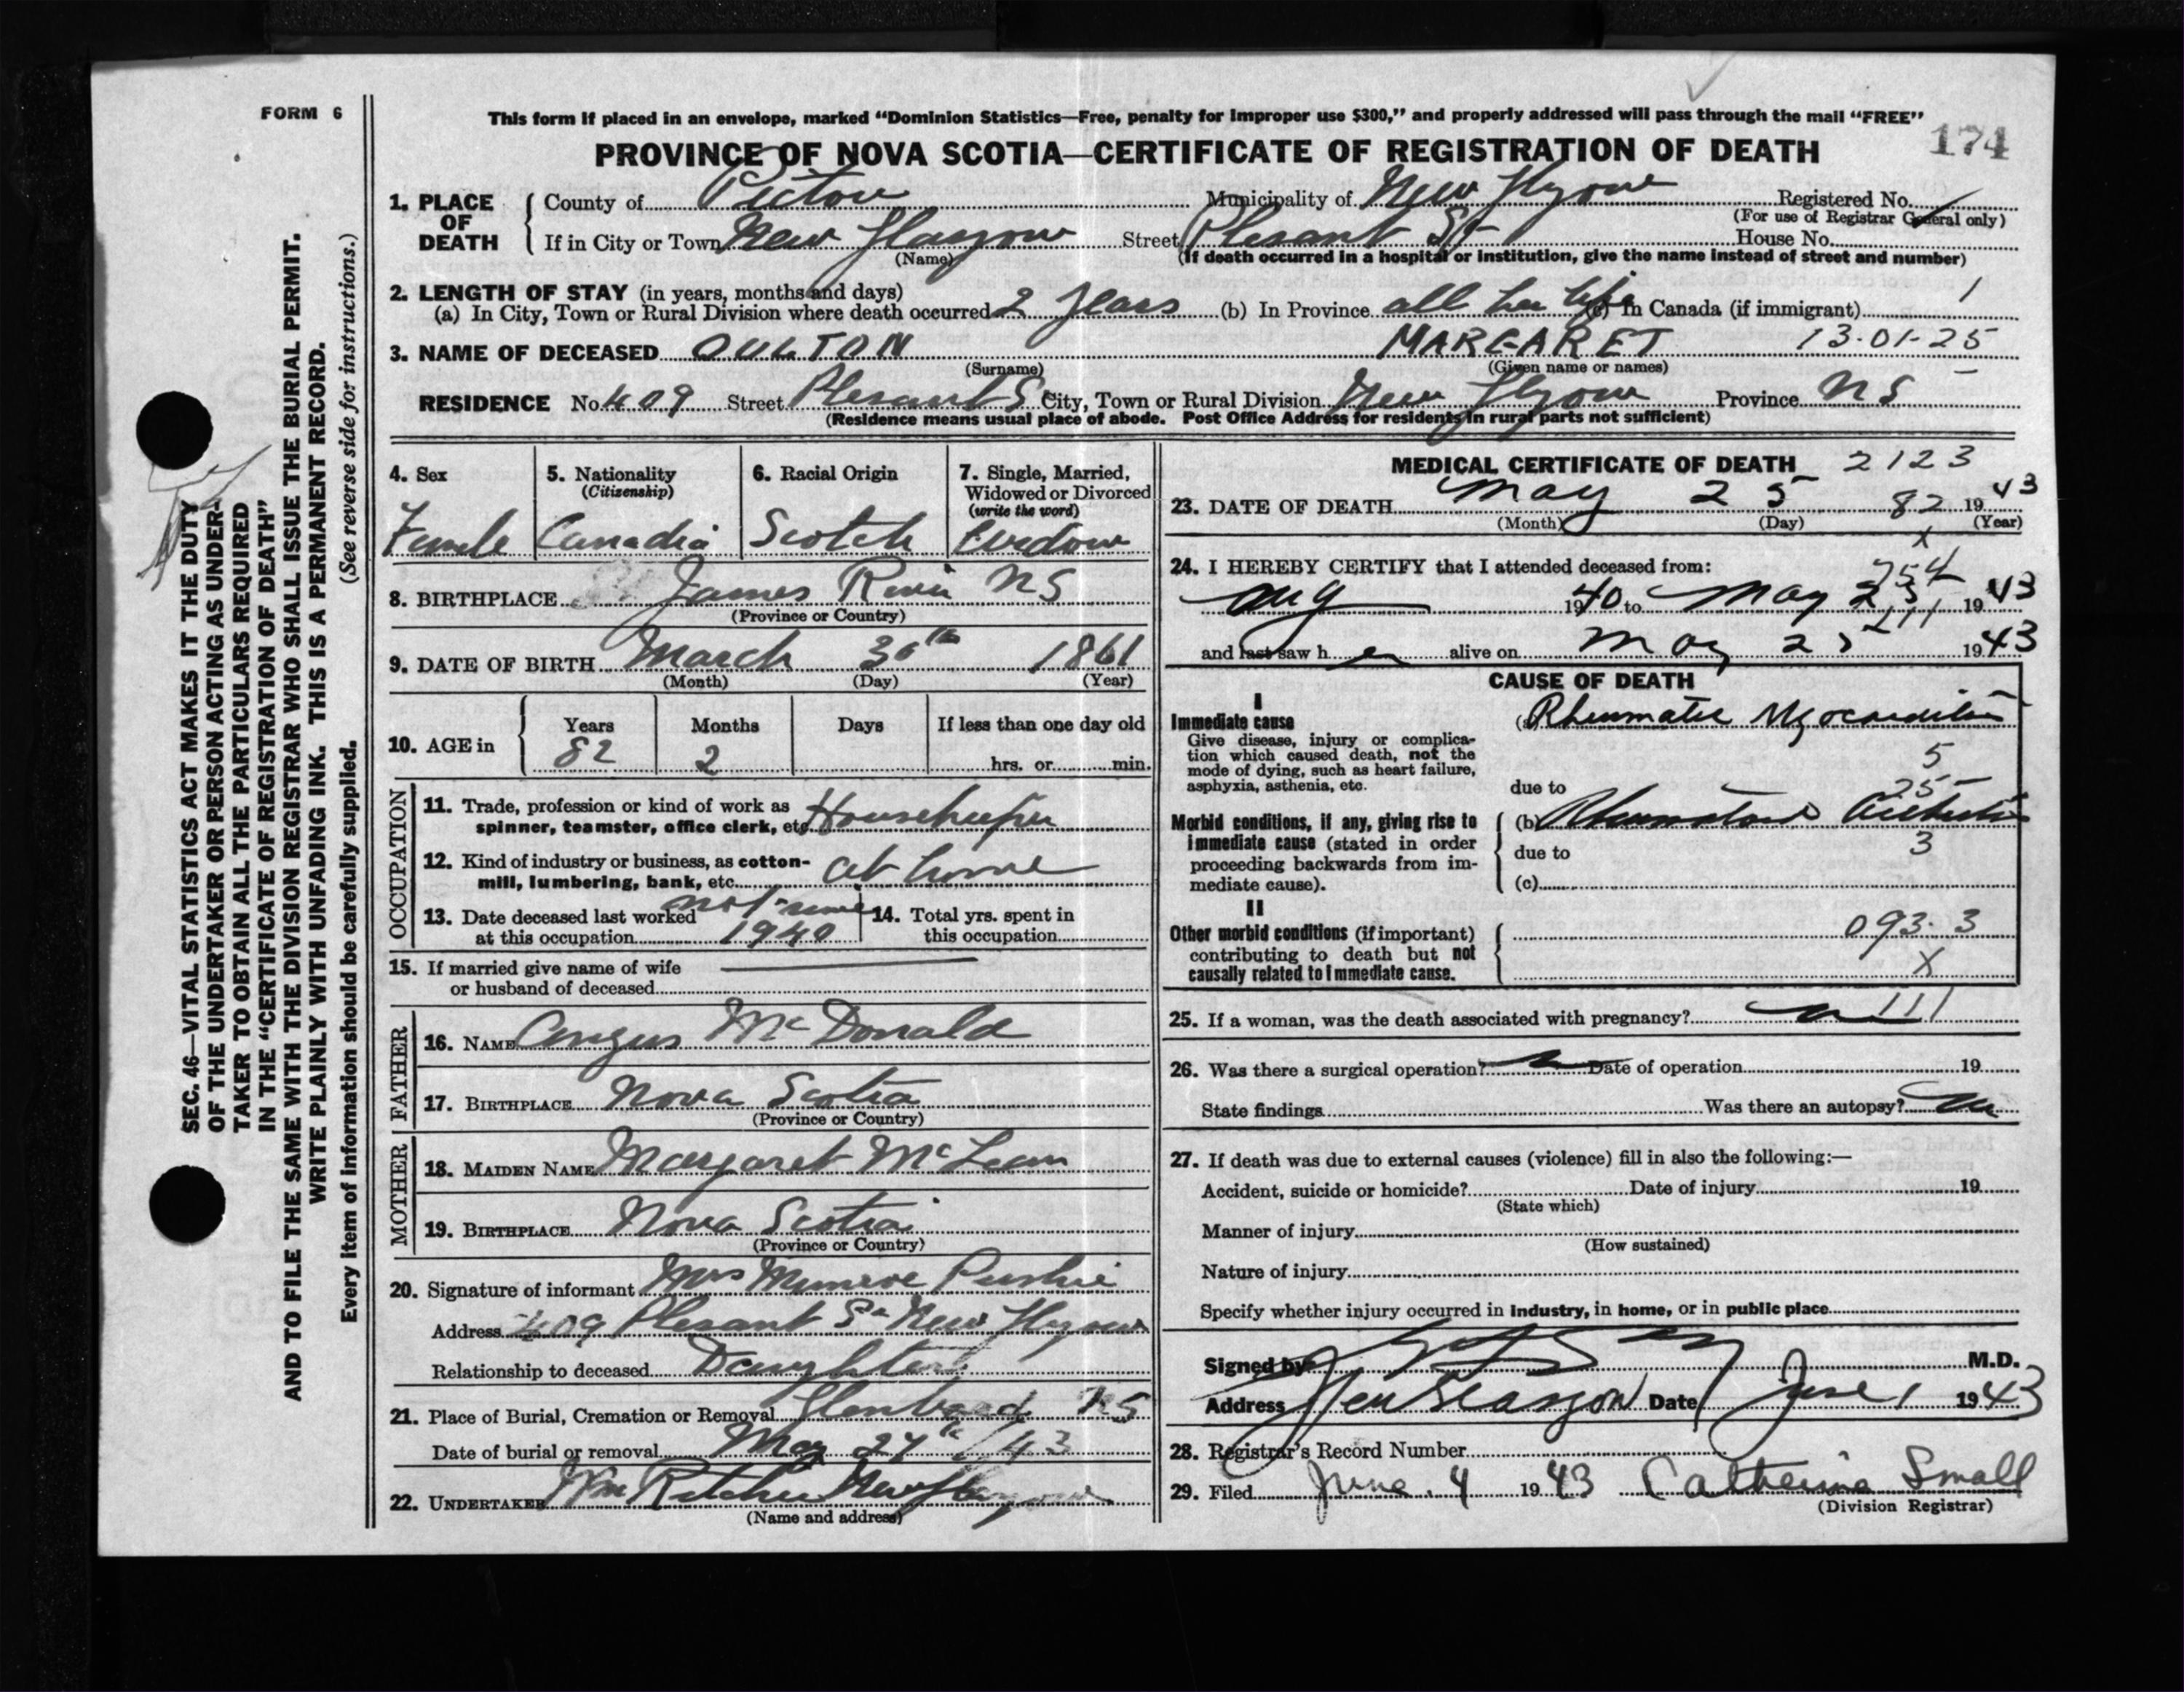 FORM 6
This form if placed in an envelope, marked "Dominion Statistics—Free, penalty for improper use $300," and properly addressed will pass through the mail "FREE"
PROVINCE OF NOVA SCOTIA—CERTIFICATE OF REGISTRATION OF DEATH 174
1. PLACE OF DEATH
County of Pictou Municipality of New Glasgow Registered No.
(For use of Registrar General only)
If in City or Town New Glasgow Street Plesant St House No.
(Name)
(If death occurred in a hospital or institution, give the name instead of street and number)
2. LENGTH OF STAY (in years, months and days) 1
(a) In City, Town or Rural Division where death occurred 2 years (b) In Province all her life (c) In Canada (if immigrant)
3. NAME OF DECEASED OULTON MARGARET 13·01-25
(Surname) (Given name or names)
RESIDENCE No. 409 Street Plesant S City, Town or Rural Division New Glasgow Province NS
(Residence means usual place of abode. Post Office Address for residents in rural parts not sufficient)
4. Sex
Female
5. Nationality
(Citizenship)
Canadia
6. Racial Origin
Scotch
7. Single, Married,
Widowed or Divorced
(write the word)
Widow
8. BIRTHPLACE James River NS
(Province or Country)
9. DATE OF BIRTH March 30th 1861
(Month) (Day) (Year)
10. AGE in
Years Months Days If less than one day old
82 2 hrs. or min.
OCCUPATION
11. Trade, profession or kind of work as
spinner, teamster, office clerk, etc. Housekeeper
12. Kind of industry or business, as cotton-
mill, lumbering, bank, etc. at home
13. Date deceased last worked not since
at this occupation 1940
14. Total yrs. spent in
this occupation
15. If married give name of wife
or husband of deceased
FATHER
16. NAME Angus McDonald
17. BIRTHPLACE Nova Scotia
(Province or Country)
MOTHER
18. MAIDEN NAME Margaret McLean
19. BIRTHPLACE Nova Scotia
(Province or Country)
20. Signature of informant Mrs Munroe Pushie
Address 409 Plesant St New Glasgow
Relationship to deceased Daughter
21. Place of Burial, Cremation or Removal Glenbard NS
Date of burial or removal May 27th /43
22. UNDERTAKER Wm Ritchie New Glasgow
(Name and address)
MEDICAL CERTIFICATE OF DEATH 2123
23. DATE OF DEATH May 25 82 1943
(Month) (Day) (Year)
x
24. I HEREBY CERTIFY that I attended deceased from:
254
Aug 1940 to May 25 1943
111
and last saw her alive on May 25 1943
CAUSE OF DEATH
I
Immediate cause
Give disease, injury or complica-
tion which caused death, not the
mode of dying, such as heart failure,
asphyxia, asthenia, etc.
(a) Rheumatic Myocarditis
5
due to 25
Morbid conditions, if any, giving rise to
immediate cause (stated in order
proceeding backwards from im-
mediate cause).
(b) Rheumatoid Arthritis
due to 3
(c)
II
Other morbid conditions (if important)
contributing to death but not
causally related to immediate cause.
093·3
X
25. If a woman, was the death associated with pregnancy? no 111
26. Was there a surgical operation? no Date of operation 19
State findings Was there an autopsy? no
27. If death was due to external causes (violence) fill in also the following:—
Accident, suicide or homicide? Date of injury 19
(State which)
Manner of injury
(How sustained)
Nature of injury
Specify whether injury occurred in industry, in home, or in public place
Signed by M.D.
Address New Glasgow Date June 1 1943
28. Registrar's Record Number
29. Filed June 4 1943 Catherine Small
(Division Registrar)
SEC. 46—VITAL STATISTICS ACT MAKES IT THE DUTY
OF THE UNDERTAKER OR PERSON ACTING AS UNDER-
TAKER TO OBTAIN ALL THE PARTICULARS REQUIRED
IN THE "CERTIFICATE OF REGISTRATION OF DEATH"
AND TO FILE THE SAME WITH THE DIVISION REGISTRAR WHO SHALL ISSUE THE BURIAL PERMIT.
WRITE PLAINLY WITH UNFADING INK. THIS IS A PERMANENT RECORD.
Every item of information should be carefully supplied. (See reverse side for instructions.)